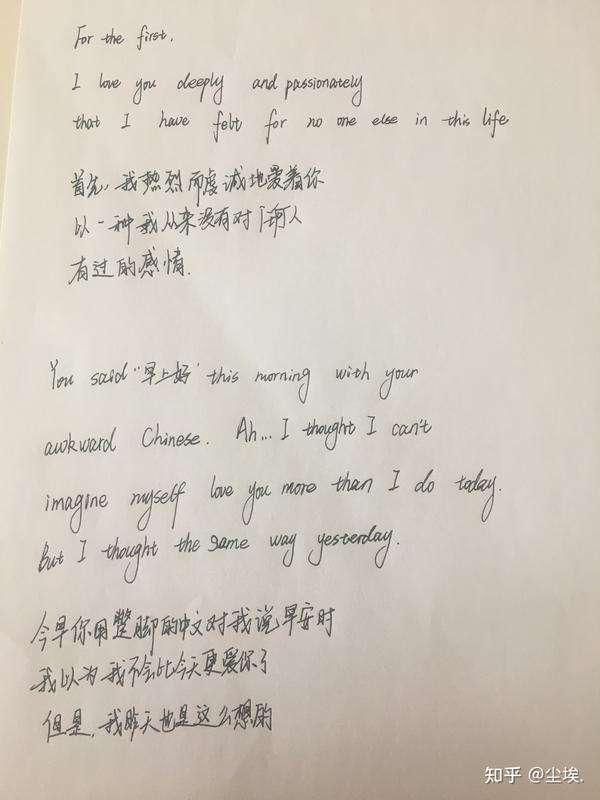 For the first,
I love you deeply and passionately
that I have felt for no one else in this life
首先,我热烈而虔诚地爱着你
以一种我从来没有对任何人
有过的感情.
You said "早上好" this morning with your
awkward Chinese. Ah... I thought I can't
imagine myself love you more than I do today.
But I thought the same way yesterday.
今早你用蹩脚的中文对我说早安时
我以为我不会比今天更爱你了
但是,我昨天也是这么想的
知乎 @尘埃.